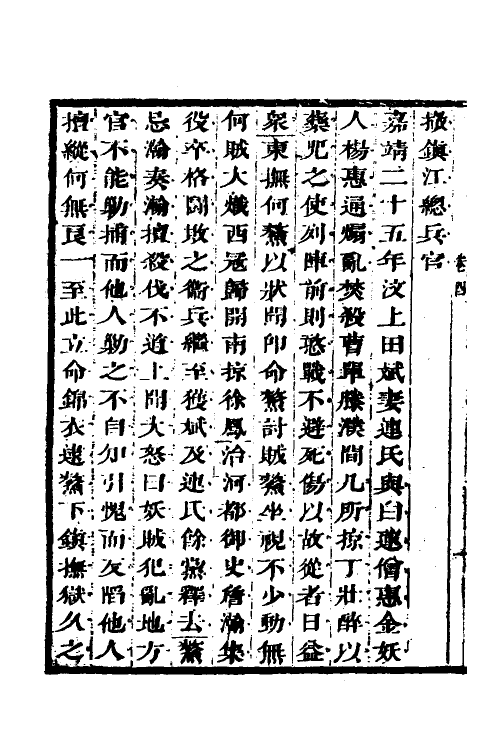 撤鎮江總兵官
卷四
嘉靖二十五年汶上田斌妻連氏與白蓮僧惠金妖
人楊惠通煽亂焚殺曹單滕濮間凡所掠丁壯醉以
藥咒之使列陣前則憨戰不避死傷以故從者日益
衆東撫何鰲以狀聞卽命鰲討賊鰲坐視不少動無
何賊大熾西寇歸開南掠徐鳳治河都御史詹瀚集
役卒格鬪敗之衞兵繼至獲斌及連氏餘黨釋去鰲
忌瀚奏瀚擅殺伐不道上聞大怒曰妖賊犯亂地方
官不能勦捕而他人勦之不自知引愧而反陷他人
擅縱何無良一至此立命錦衣逮鰲下鎮撫獄久之